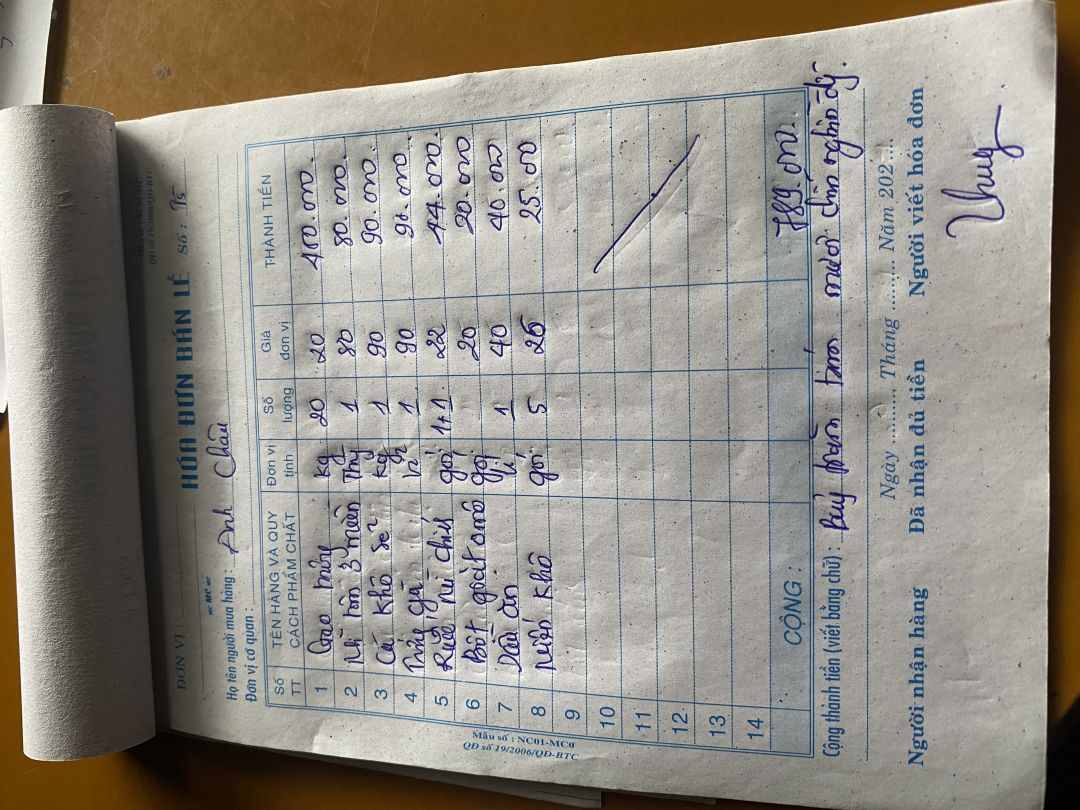 ĐƠN VỊ :
QĐ số 19/2006/QĐ-BTC
HÓA ĐƠN BÁN LẺ Số : 15
Họ tên người mua hàng : Anh Châu
Đơn vị cơ quan :
Số TT TÊN HÀNG VÀ QUY CÁCH PHẨM CHẤT Đơn vị tính Số lượng Giá đơn vị THÀNH TIỀN
1 Gạo kg 20 20 400.000.
2 Mì tôm 3 miền Thg 1 80 80.000.
3 Cá khô sẽ kg 1 90 90.000.
4 Trứng gà 1 90 90.000.
5 chiếu gói 1+1 22 44.000.
6 Bột gói 20 20.000
7 Dầu ăn 1 40 40.000
8 Miến khô gói 5 25 25.000
9
10
11
12
13
14
CỘNG : 789.000.
Cộng thành tiền (viết bằng chữ) : Bảy trăm tám mươi chín nghìn đg.
Ngày ......... Tháng ......... Năm 202....
Người nhận hàng Đã nhận đủ tiền Người viết hóa đơn
Thuy
Mẫu số : NC01-MC0
QĐ số 19/2006/QĐ-BTC